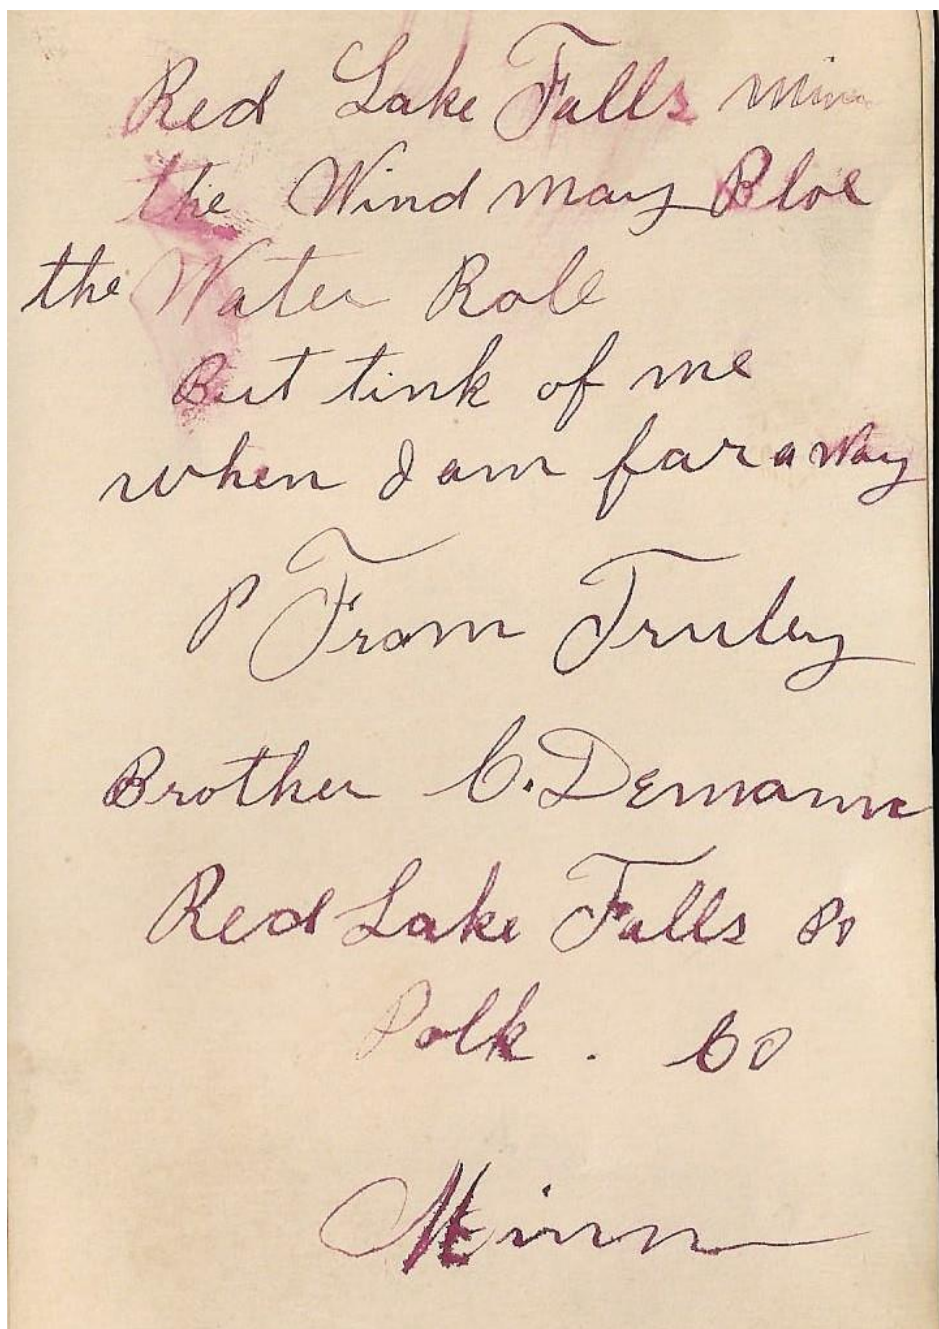 Red Lake Falls Minn
the Wind may Bloe
the Water Role
But tink of me
when I am far away
From Truley
Brother C. Demann
Red Lake Falls Po
Polk . Co
Minn